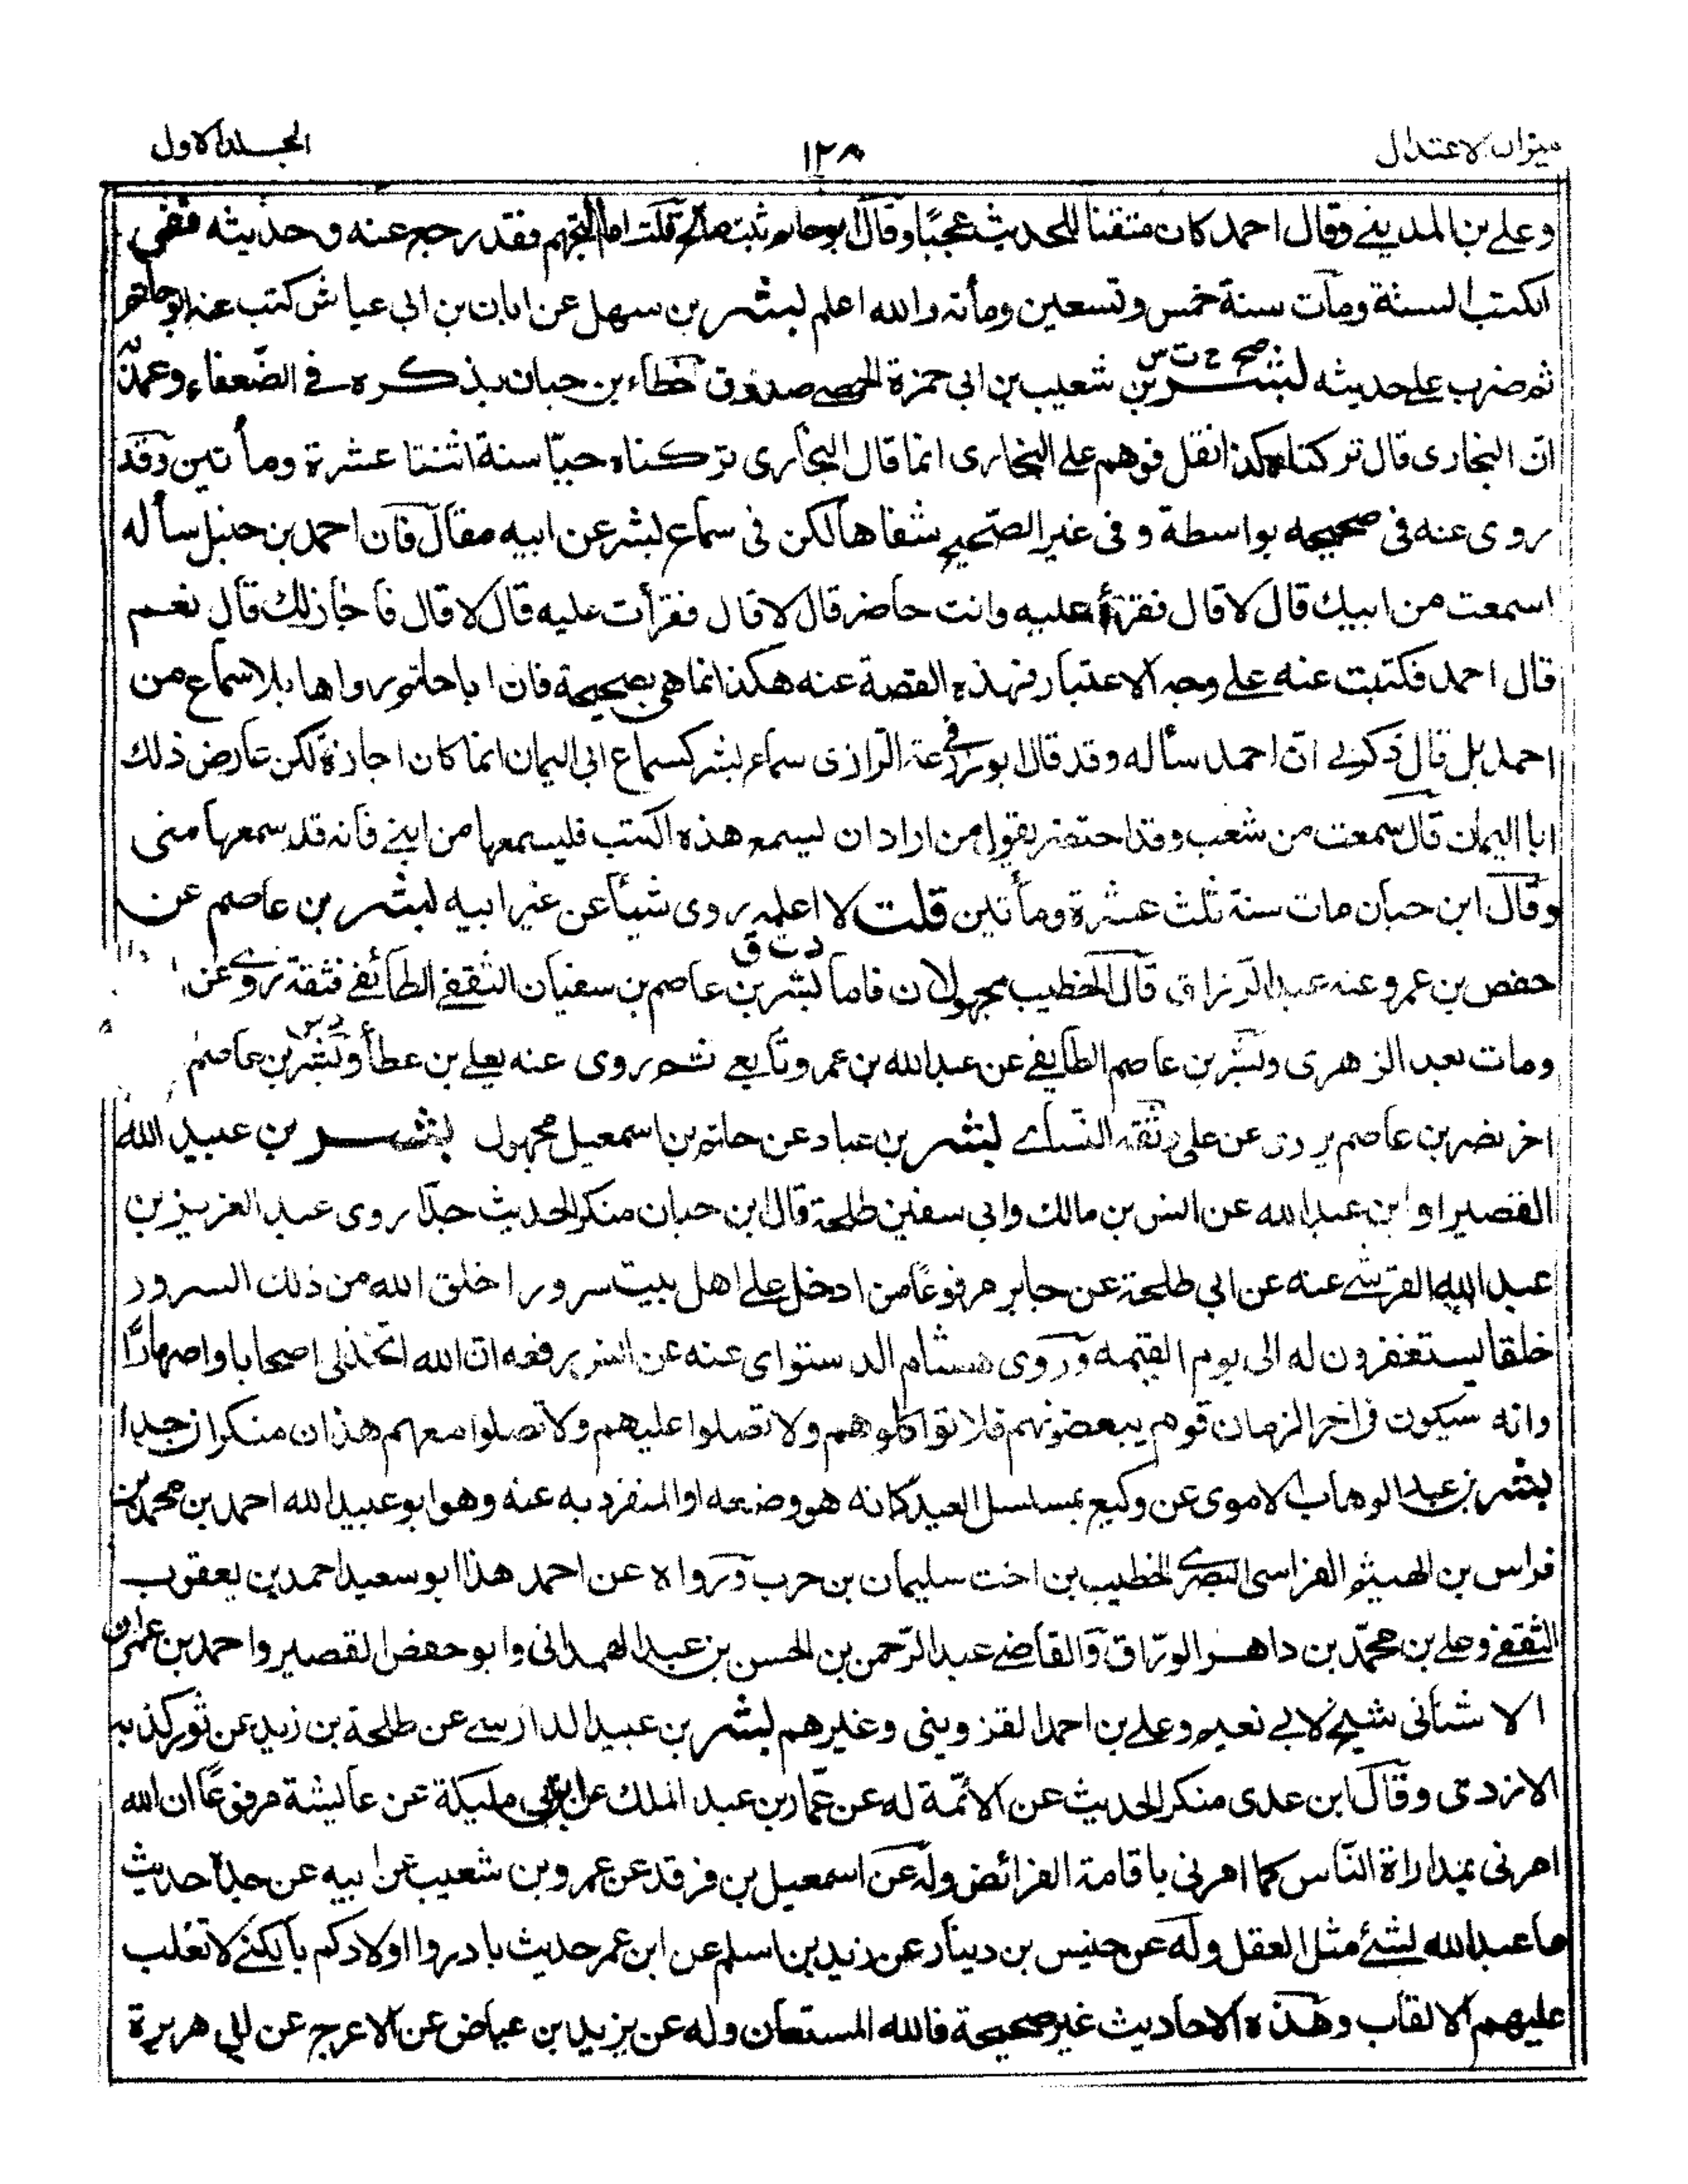 ميزان الاعتدال
١٢٨
المجلد الاول
وعلے بن المدينے وقال احمد كان متقنا للحديث عجبًا وقال ابو حاتم ثبت صالح قلت اما التجهم فقد رجع عنه وحديثه ففى
الكتب الستة ومات سنة خمس وتسعين ومأته والله اعلم بشر بن سهل عن ابان بن ابي عياش كتب عنه ابو حاتم
ثم ضرب علے حديثه بشر بن شعيب بن ابي حمزة الحمصے صدوق خطاء بن حبان بذكره فے الضعفاء وعمدته
صح خ ت س
ان البخارى قال تركناه كذا نقل فوهم علے البخارى انما قال البخارى تركناه حيّا سنة اثنتا عشرة ومأتين وقد
روى عنه فى صحيحه بواسطة و فى غير الصحيح شفاها لكن فى سماع بشر عن ابيه مقال فان احمد بن حنبل سأله
اسمعت من ابيك قال لا قال فقرأ عليه وانت حاضر قال لا قال فقرأت عليه قال لا قال فأجاز لك قال نعم
قال احمد فكتبت عنه علے وجه الاعتبار فهذه القصة عنه هكذا انما هى بصحيحة فان ابا حاتم رواها بلا سماع من
احمد بل قال ذكر لے انّ احمد سأله وقد قال ابو زرعة الرازى سماع بشر كسماع ابي اليمان انما كان اجازة لكن عارض ذلك
ابا اليمان قال سمعت من شعب وقد احتضر يقول من اراد ان يسمع هذه الكتب فليسمعها من ابنے فانه قد سمعها منى
وقال ابن حبان مات سنة ثلث عشرة ومأتين قلت لا اعلمه روى شيأ عن غير ابيه بشر بن عاصم عن
د ت ق
حفص بن عمر وعنه عبد الرزاق قال الخطيب مجهولان فاما بشر بن عاصم بن سفيان الثقفے الطائفے فثقة يروے عن
ومات بعد الزهرى وبشر بن عاصم الطايفے عن عبد الله بن عمرو تابعے ثم روى عنه يعلے بن عطأ وبشر بن عاصم
د س
اخر نضر بن عاصم يروى عن على وثقه النسائے بشر بن عباد عن حاتم بن اسمعيل مجهول بشر بن عبيد الله
القصير او ابن عبد الله عن انس بن مالك وابى سفين طلحة قال ابن حبان منكر الحديث جدّا روى عبد العزيز بن
عبد الله القرشے عنه عن ابي طلحة عن جابر مرفوعًا من ادخل علے اهل بيت سرورا خلق الله من ذلك السرور
خلقا يستغفرون له الى يوم القيمه وروى هشام الدستوائ عنه عن انس يرفعه ان الله اتخذ لى اصحابا واصهارًا
وانه سيكون فى اخر الزمان قوم يبعضونهم فلا تواكلوهم ولا تصلوا عليهم ولا تصلوا معهم هذان منكران جدا
بشر بن عبد الوهاب الاموى عن وكيع بمسلسل العيد كانه هو وضعه او المنفرد به عنه وهو ابو عبيد الله احمد بن محمد بن
فراس بن الهيثم الفراسى البصرے الخطيب بن اخت سليمان بن حرب ورواه عن احمد هذا ابو سعيد احمد بن يعقوب
الثقفے وعلے بن محمّد بن داهر الورّاق والقاضے عبد الرّحمن بن الحسن بن عبد الهمدانى وابو حفص القصير واحمد بن عمران
الاشنانى شيخ لابے نعيم وعلے بن احمد القزوينى وغيرهم بشر بن عبيد الدارسے عن طلحة بن زيد عن ثور كذبه
الازدى وقال ابن عدى منكر الحديث عن الائمّة له عن عمّار بن عبد الملك عن ابن ابى مليكة عن عائشة مرفوعًا ان الله
امرنى بمداراة النّاس كما امرنى باقامة الفرائض وله عن اسمعيل بن فرقد عن عمرو بن شعيب عن ابيه عن جده حديث
ما عبد الله بشئ مثل العقل وله عن حنيس بن دينار عن زيد بن اسلم عن ابن عمر حديث بادروا اولادكم بالكنے لا تغلب
عليهم الالقاب وهذه الاحاديث غير صحيحة فالله المستعان وله عن يزيد بن عياض عن الاعرج عن ابي هريرة